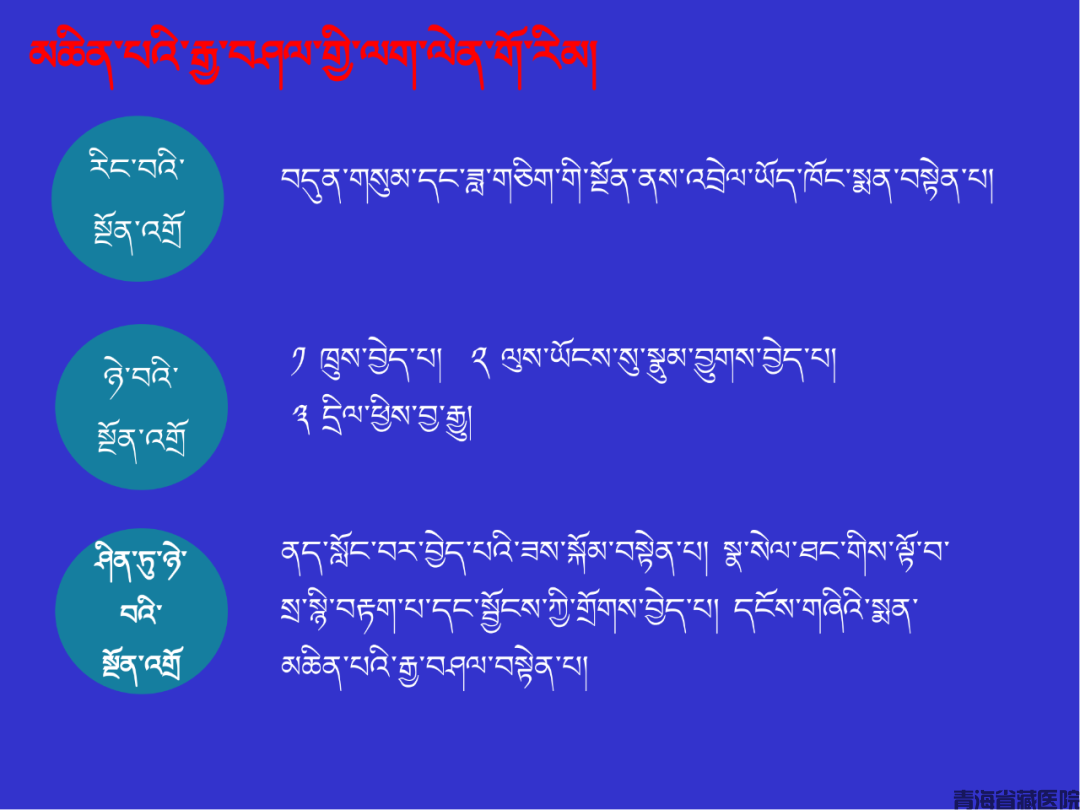 མཆིན་པའི་རྒྱ་བཤལ་གྱི་ལག་ལེན་གོ་རིམ།
རིང་བའི་
སྔོན་འགྲོ
བདུན་གསུམ་དང་ཟླ་གཅིག་གི་སྔོན་ནས་འབྲེལ་ཡོད་ཁོང་སྨན་བསྟེན་པ།
ཉེ་བའི་
སྔོན་འགྲོ
༡ ཁྲུས་བྱེད་པ། ༢ ལུས་ཡོངས་སུ་སྣུམ་བྱུགས་བྱེད་པ།
༣ དྲིལ་ཕྱིས་བྱ་རྒྱུ།
ཤིན་ཏུ་ཉེ་
བའི་
སྔོན་འགྲོ
ནད་སློང་བར་བྱེད་པའི་ཟས་སྐོམ་བསྟེན་པ། སྣ་སེལ་ཐང་གིས་ལྟོ་བ་
སྲ་སྙི་བརྟག་པ་དང་སྦྱོངས་ཀྱི་གྲོགས་བྱེད་པ། དངོས་གཞིའི་སྨན་
མཆིན་པའི་རྒྱ་བཤལ་བསྟེན་པ།
青海省藏医院